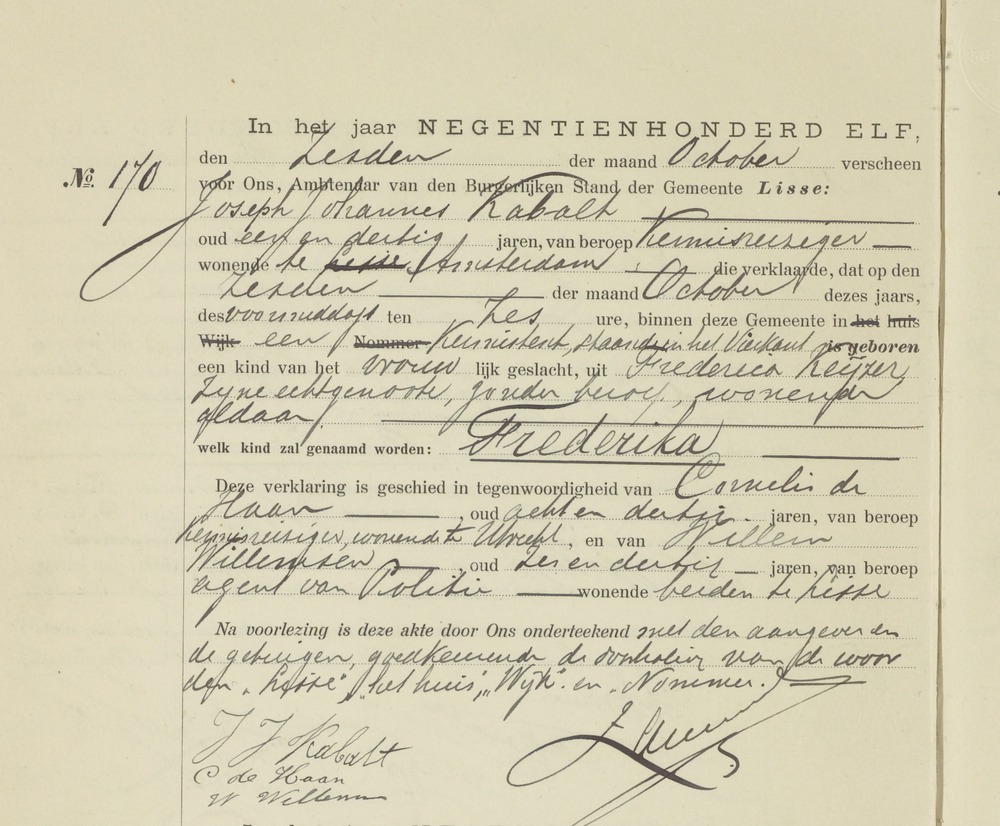 In het jaar NEGENTIENHONDERD ELF,
den Zesden der maand October verscheen
No. 170
voor Ons, Ambtenaar van den Burgerlijken Stand der Gemeente Lisse:
Joseph Johannes Kabalt
oud een en dertig jaren, van beroep Kermisreiziger
wonende te Lisse Amsterdam die verklaarde, dat op den
Zesden der maand October dezes jaars,
des voormiddags ten Zes ure, binnen deze Gemeente in het huis
Wijk een Nommer Kermistent, staande in het Vierkant is geboren
een kind van het vrouw lijk geslacht, uit Frederica Keijzer
Zijne echtgenoote, zonder beroep, wonende
aldaar
welk kind zal genaamd worden: Frederika
Deze verklaring is geschied in tegenwoordigheid van Cornelis de
Haan, oud acht en dertig jaren, van beroep
Kermisreisiger, wonende te Utrecht, en van Willem
Willemsen, oud Zes en dertig jaren, van beroep
agent van Politie wonende beiden te Lisse
Na voorlezing is deze akte door Ons onderteekend met den aangever en
de getuigen, goedkeurende de doorhaling van de woor
den "Lisse", "het huis", "Wijk" en "Nommer."
J J Kabalt
C de Haan
W Willemsen